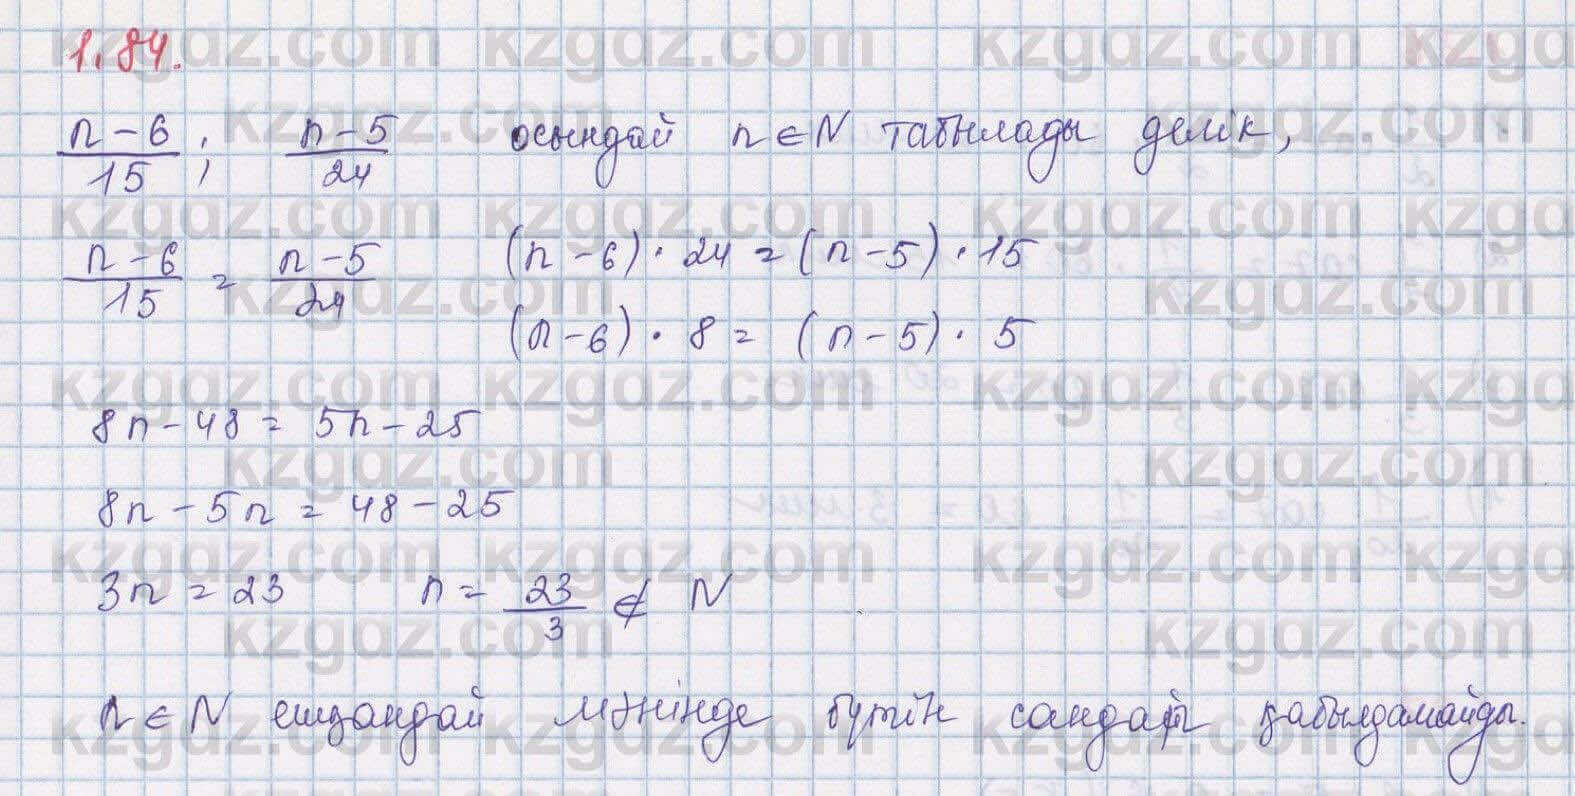 1.84.
n-6/15; n-5/24 осындай n∈N табылады делік,
n-6/15 = n-5/24 (n-6)·24=(n-5)·15
(n-6)·8=(n-5)·5
8n-48=5n-25
8n-5n=48-25
3n=23 n=23/3 ∉ N
n∈N ешқандай мәнінде бүтін сандар қабылдамайды.
kzgdz.com